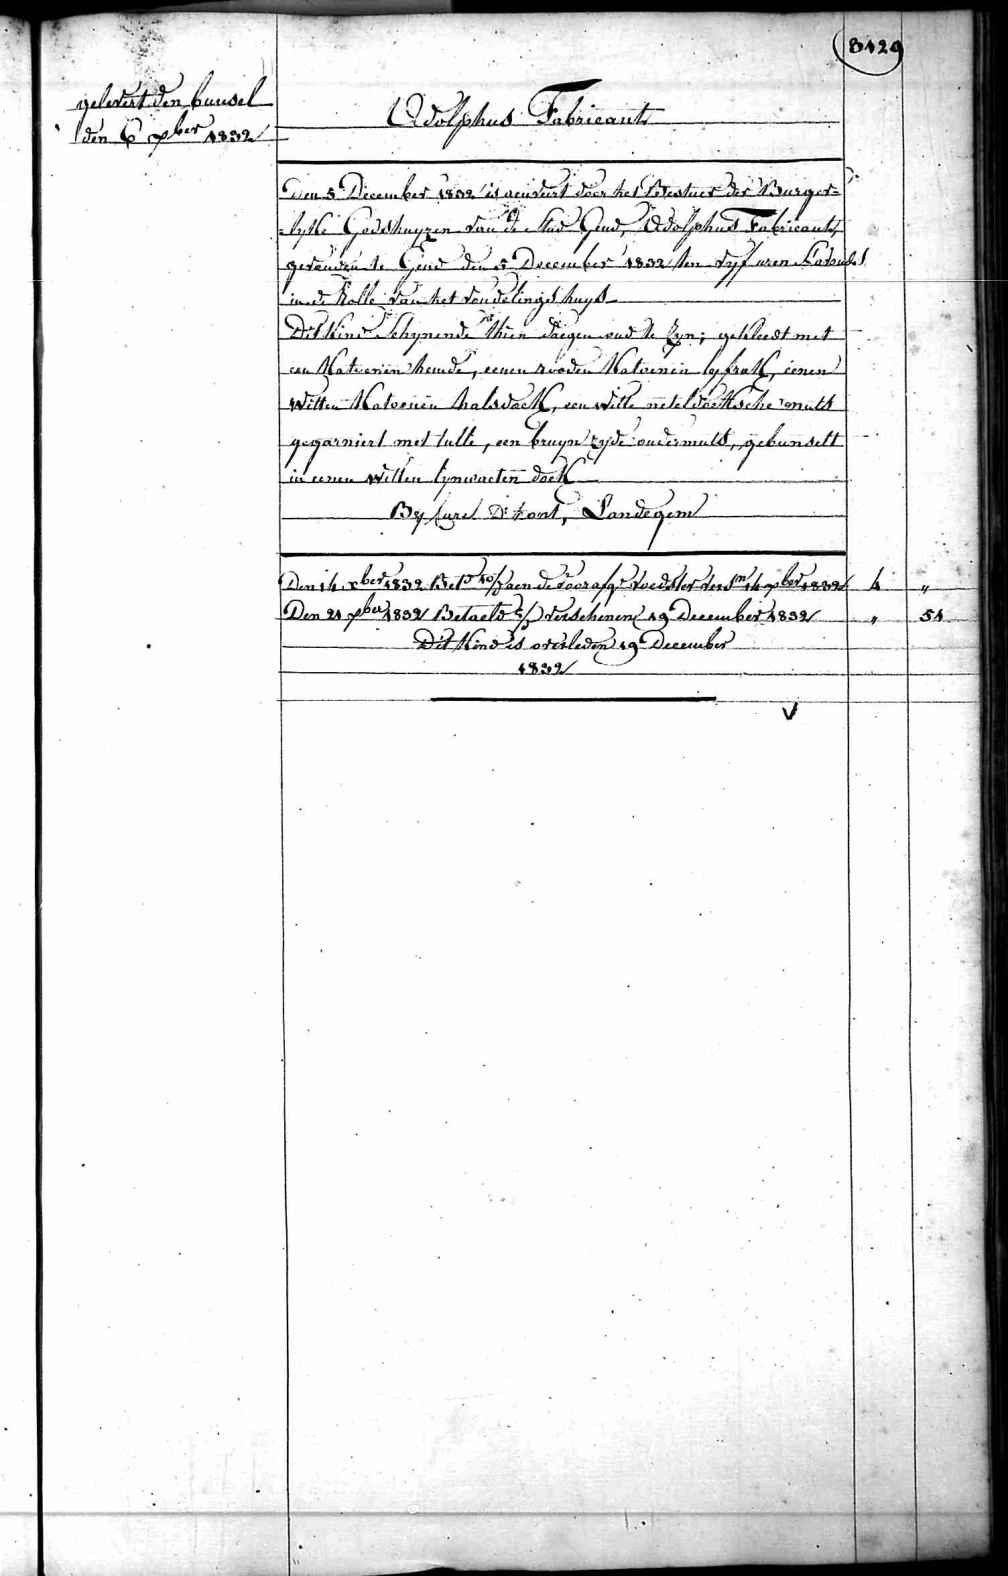 3129
gelevert den bunsel
den 6 xber 1832
Adolphus Fabricant
Den 5 December 1832 is aenveirt door het Bestuer der Burger-
-lyke Godshuyzen van de Stad Gend, Adolphus Fabricant,
gevonden te Gend den 5 December 1832 ten vyf uren s'avonds
in de Rolle van het vondelingshuys
Dit Kind schynende thien daegen oud te zyn; gekleedt met
een Katoenen hemde, eenen rooden Katoenen lyfrak, eenen
witten Katoenen halsdoek, een witte neteldoeksche muts
gegarniert met tulle, een bruyn zyde ondermuts, gebunselt
in eenen witten lynwaeten doek
By Carel D'hont, Landegem
Den 14 xber 1832 Bet.d aen de voedster 14 xber 1832 4 "
Den 21 xber 1832 Betaeld verschenen 19 December 1832 " 51
Dit Kind is overleden 19 December
1832
V